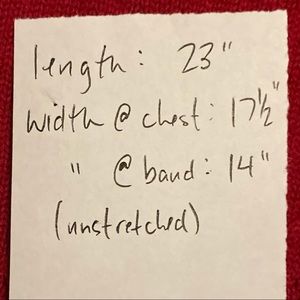 length: 23"
width @ chest: 17½"
" @ band: 14"
(unstretched)